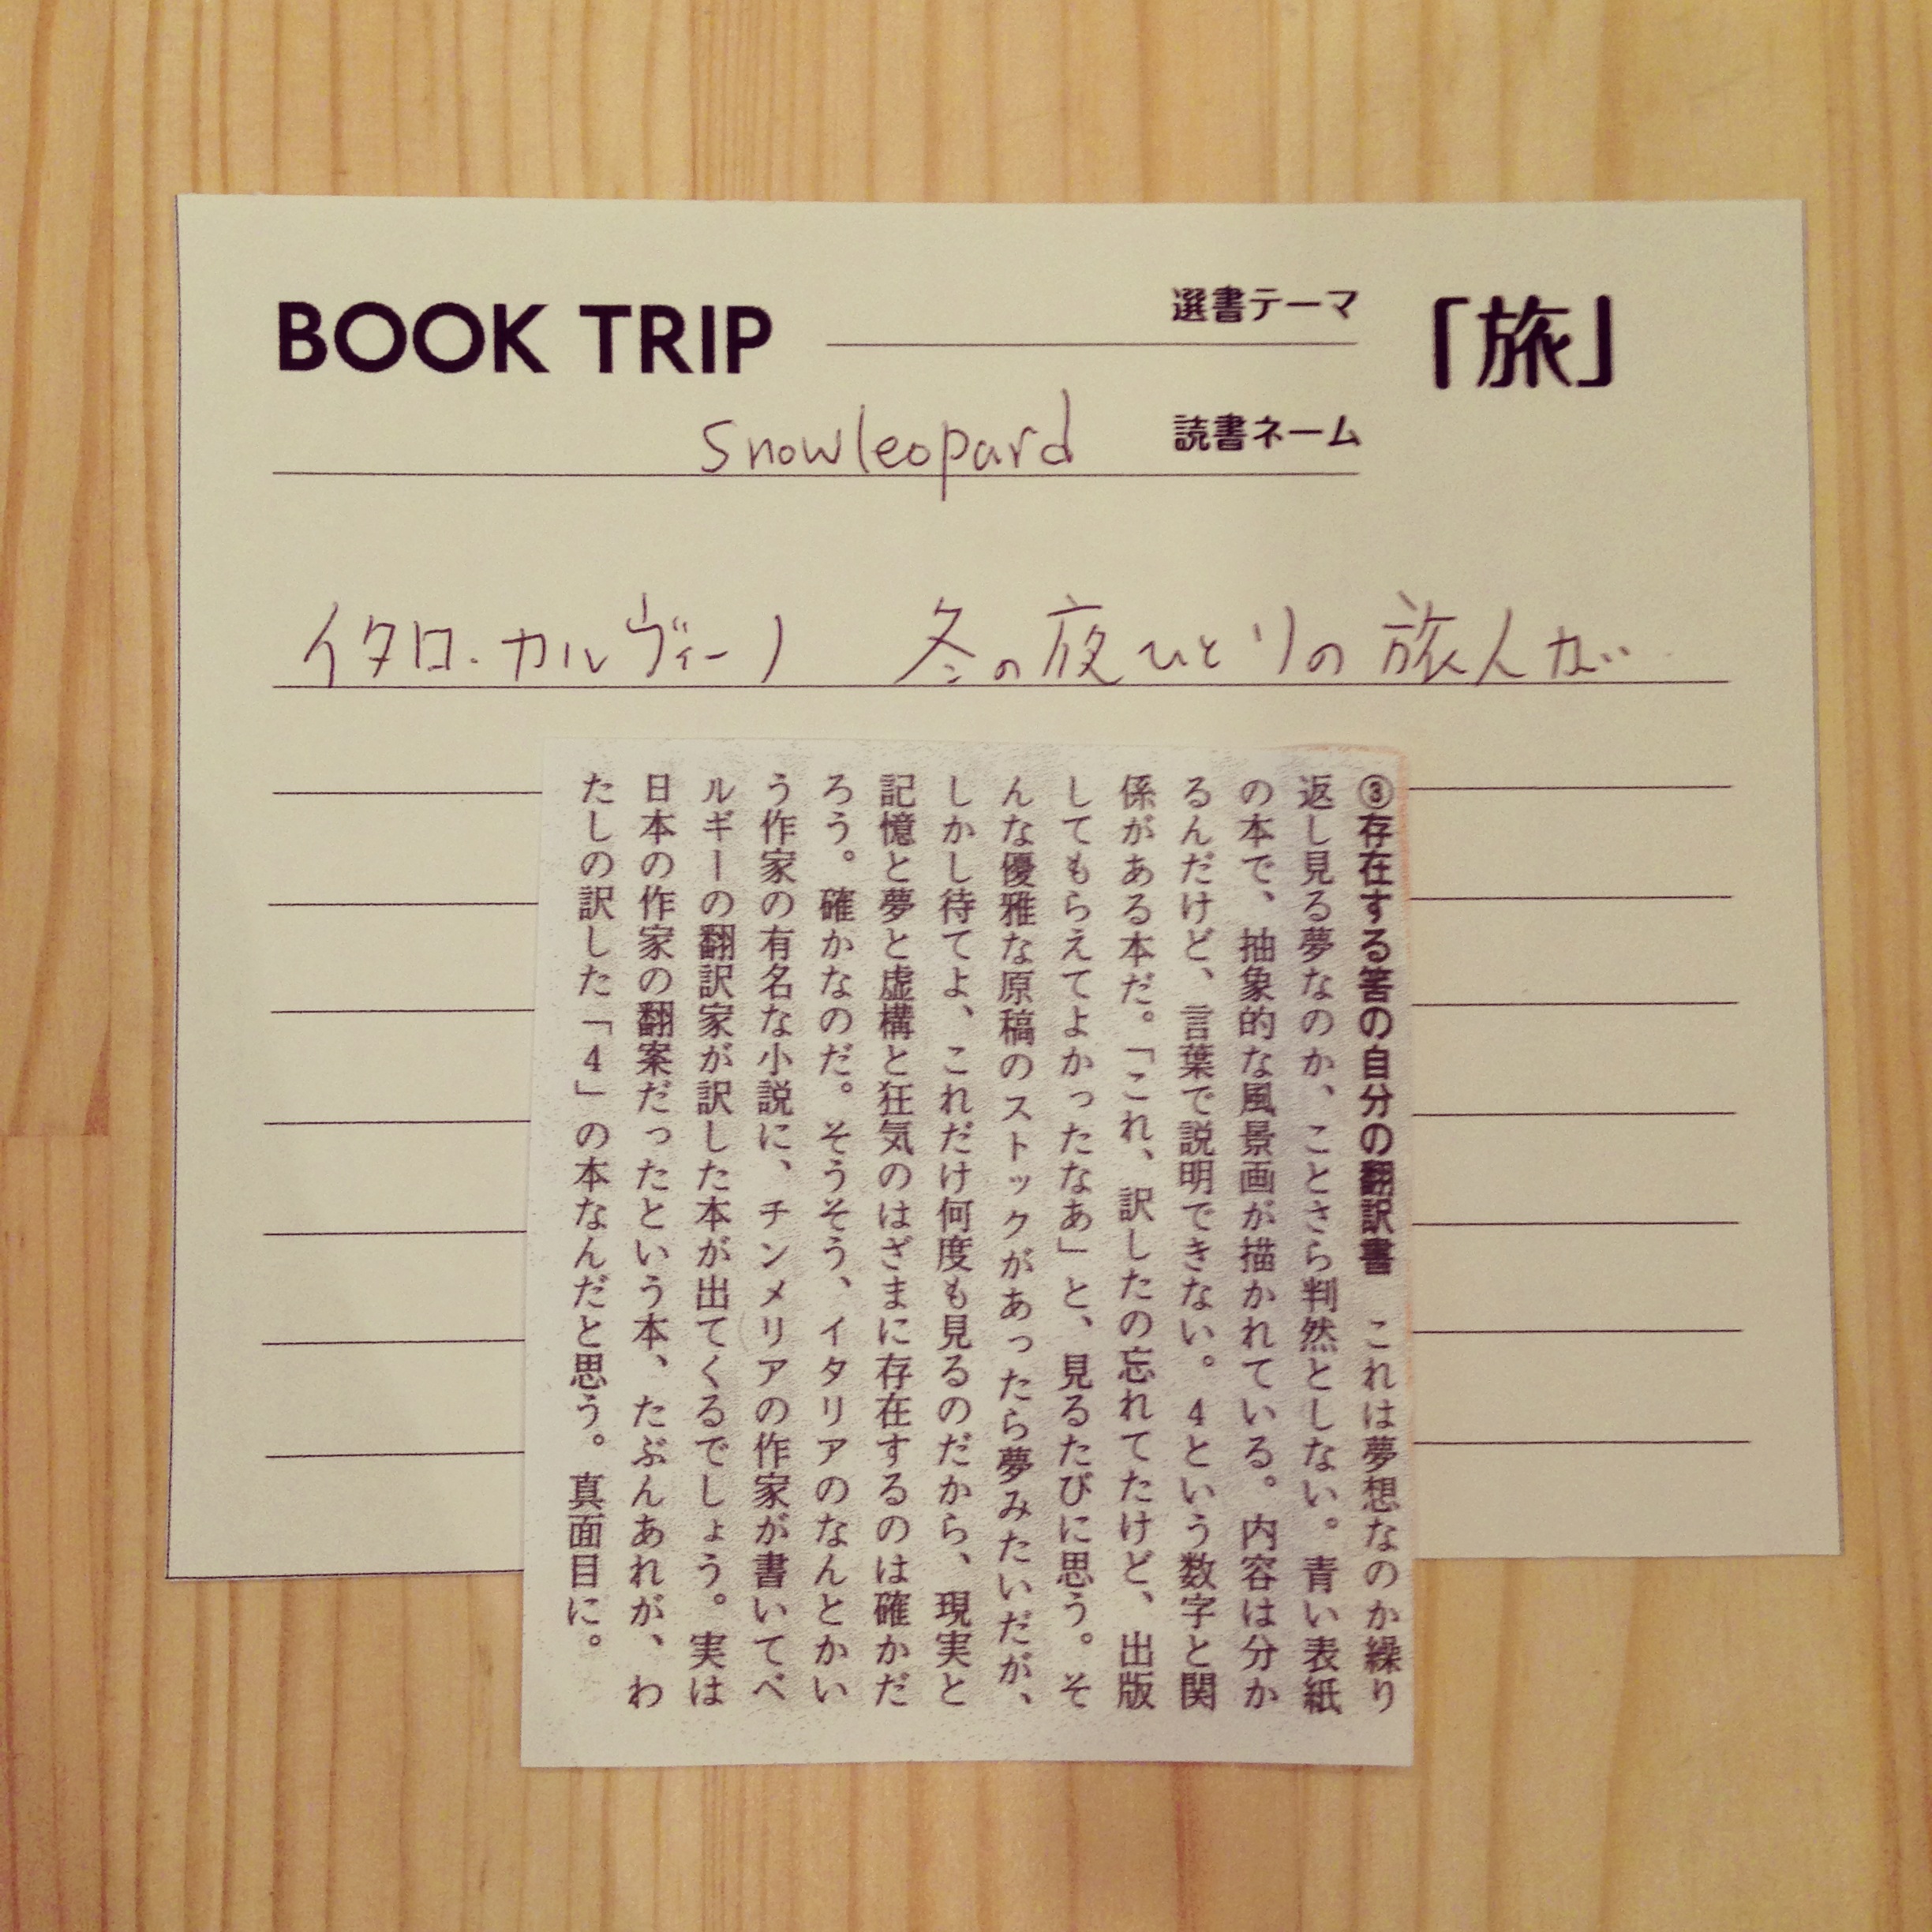 BOOK TRIP
選書テーマ
「旅」
snowleopard
読書ネーム
イタロ・カルヴィーノ 冬の夜ひとりの旅人が…
③存在する筈の自分の翻訳書 これは夢想なのか繰り
返し見る夢なのか、ことさら判然としない。青い表紙
の本で、抽象的な風景画が描かれている。内容は分か
るんだけど、言葉で説明できない。4という数字と関
係がある本だ。「これ、訳したの忘れてたけど、出版
してもらえてよかったなあ」と、見るたびに思う。そ
んな優雅な原稿のストックがあったら夢みたいだが、
しかし待てよ、これだけ何度も見るのだから、現実と
記憶と夢と虚構と狂気のはざまに存在するのは確かだ
ろう。確かなのだ。そうそう、イタリアのなんとかい
う作家の有名な小説に、チンメリアの作家が書いてベ
ルギーの翻訳家が訳した本が出てくるでしょう。実は
日本の作家の翻案だったという本、たぶんあれが、わ
たしの訳した「4」の本なんだと思う。真面目に。